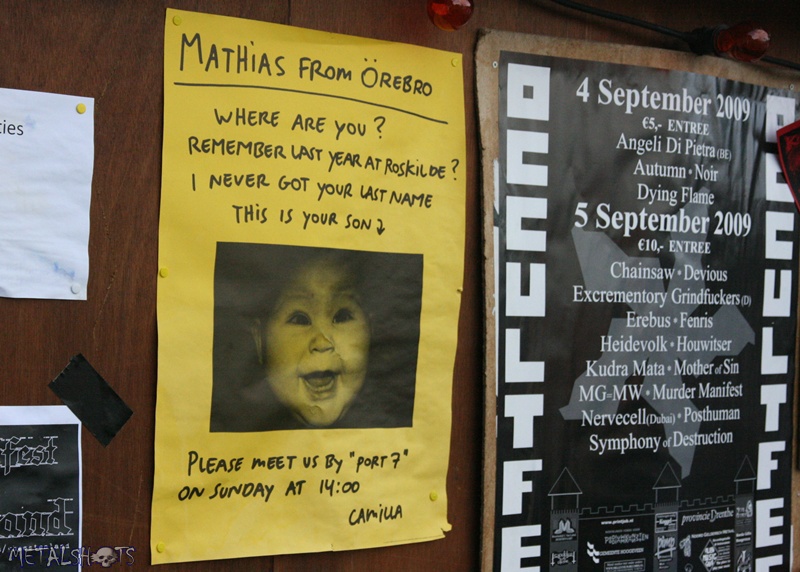 ties
MATHIAS FROM ÖREBRO
WHERE ARE YOU?
REMEMBER LAST YEAR AT ROSKILDE?
I NEVER GOT YOUR LAST NAME
THIS IS YOUR SON
PLEASE MEET US BY "PORT 7"
ON SUNDAY AT 14:00
CAMILLA
OCCULTFE
4 September 2009
€5,- ENTREE
Angeli Di Pietra (BE)
Autumn • Noir
Dying Flame
5 September 2009
€10,- ENTREE
Chainsaw • Devious
Excrementory Grindfuckers (D)
Erebus • Fenris
Heidevolk • Houwitser
Kudra Mata • Mother of Sin
MG=MW • Murder Manifest
Nervecell (Dubai) • Posthuman
Symphony of Destruction
provincie Drenthe
CULTFE
fest
and
METALSHOTS